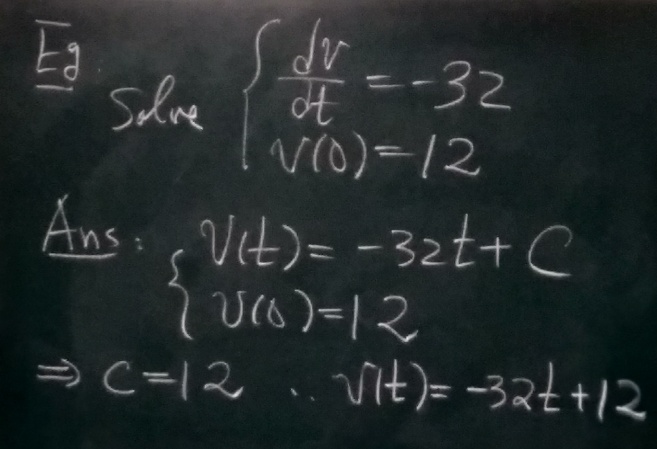 Eg.
Solve { dv/dt = -32
v(0) = 12
Ans: { V(t) = -32t + C
v(0) = 12
⇒ C = 12 ∴ v(t) = -32t + 12